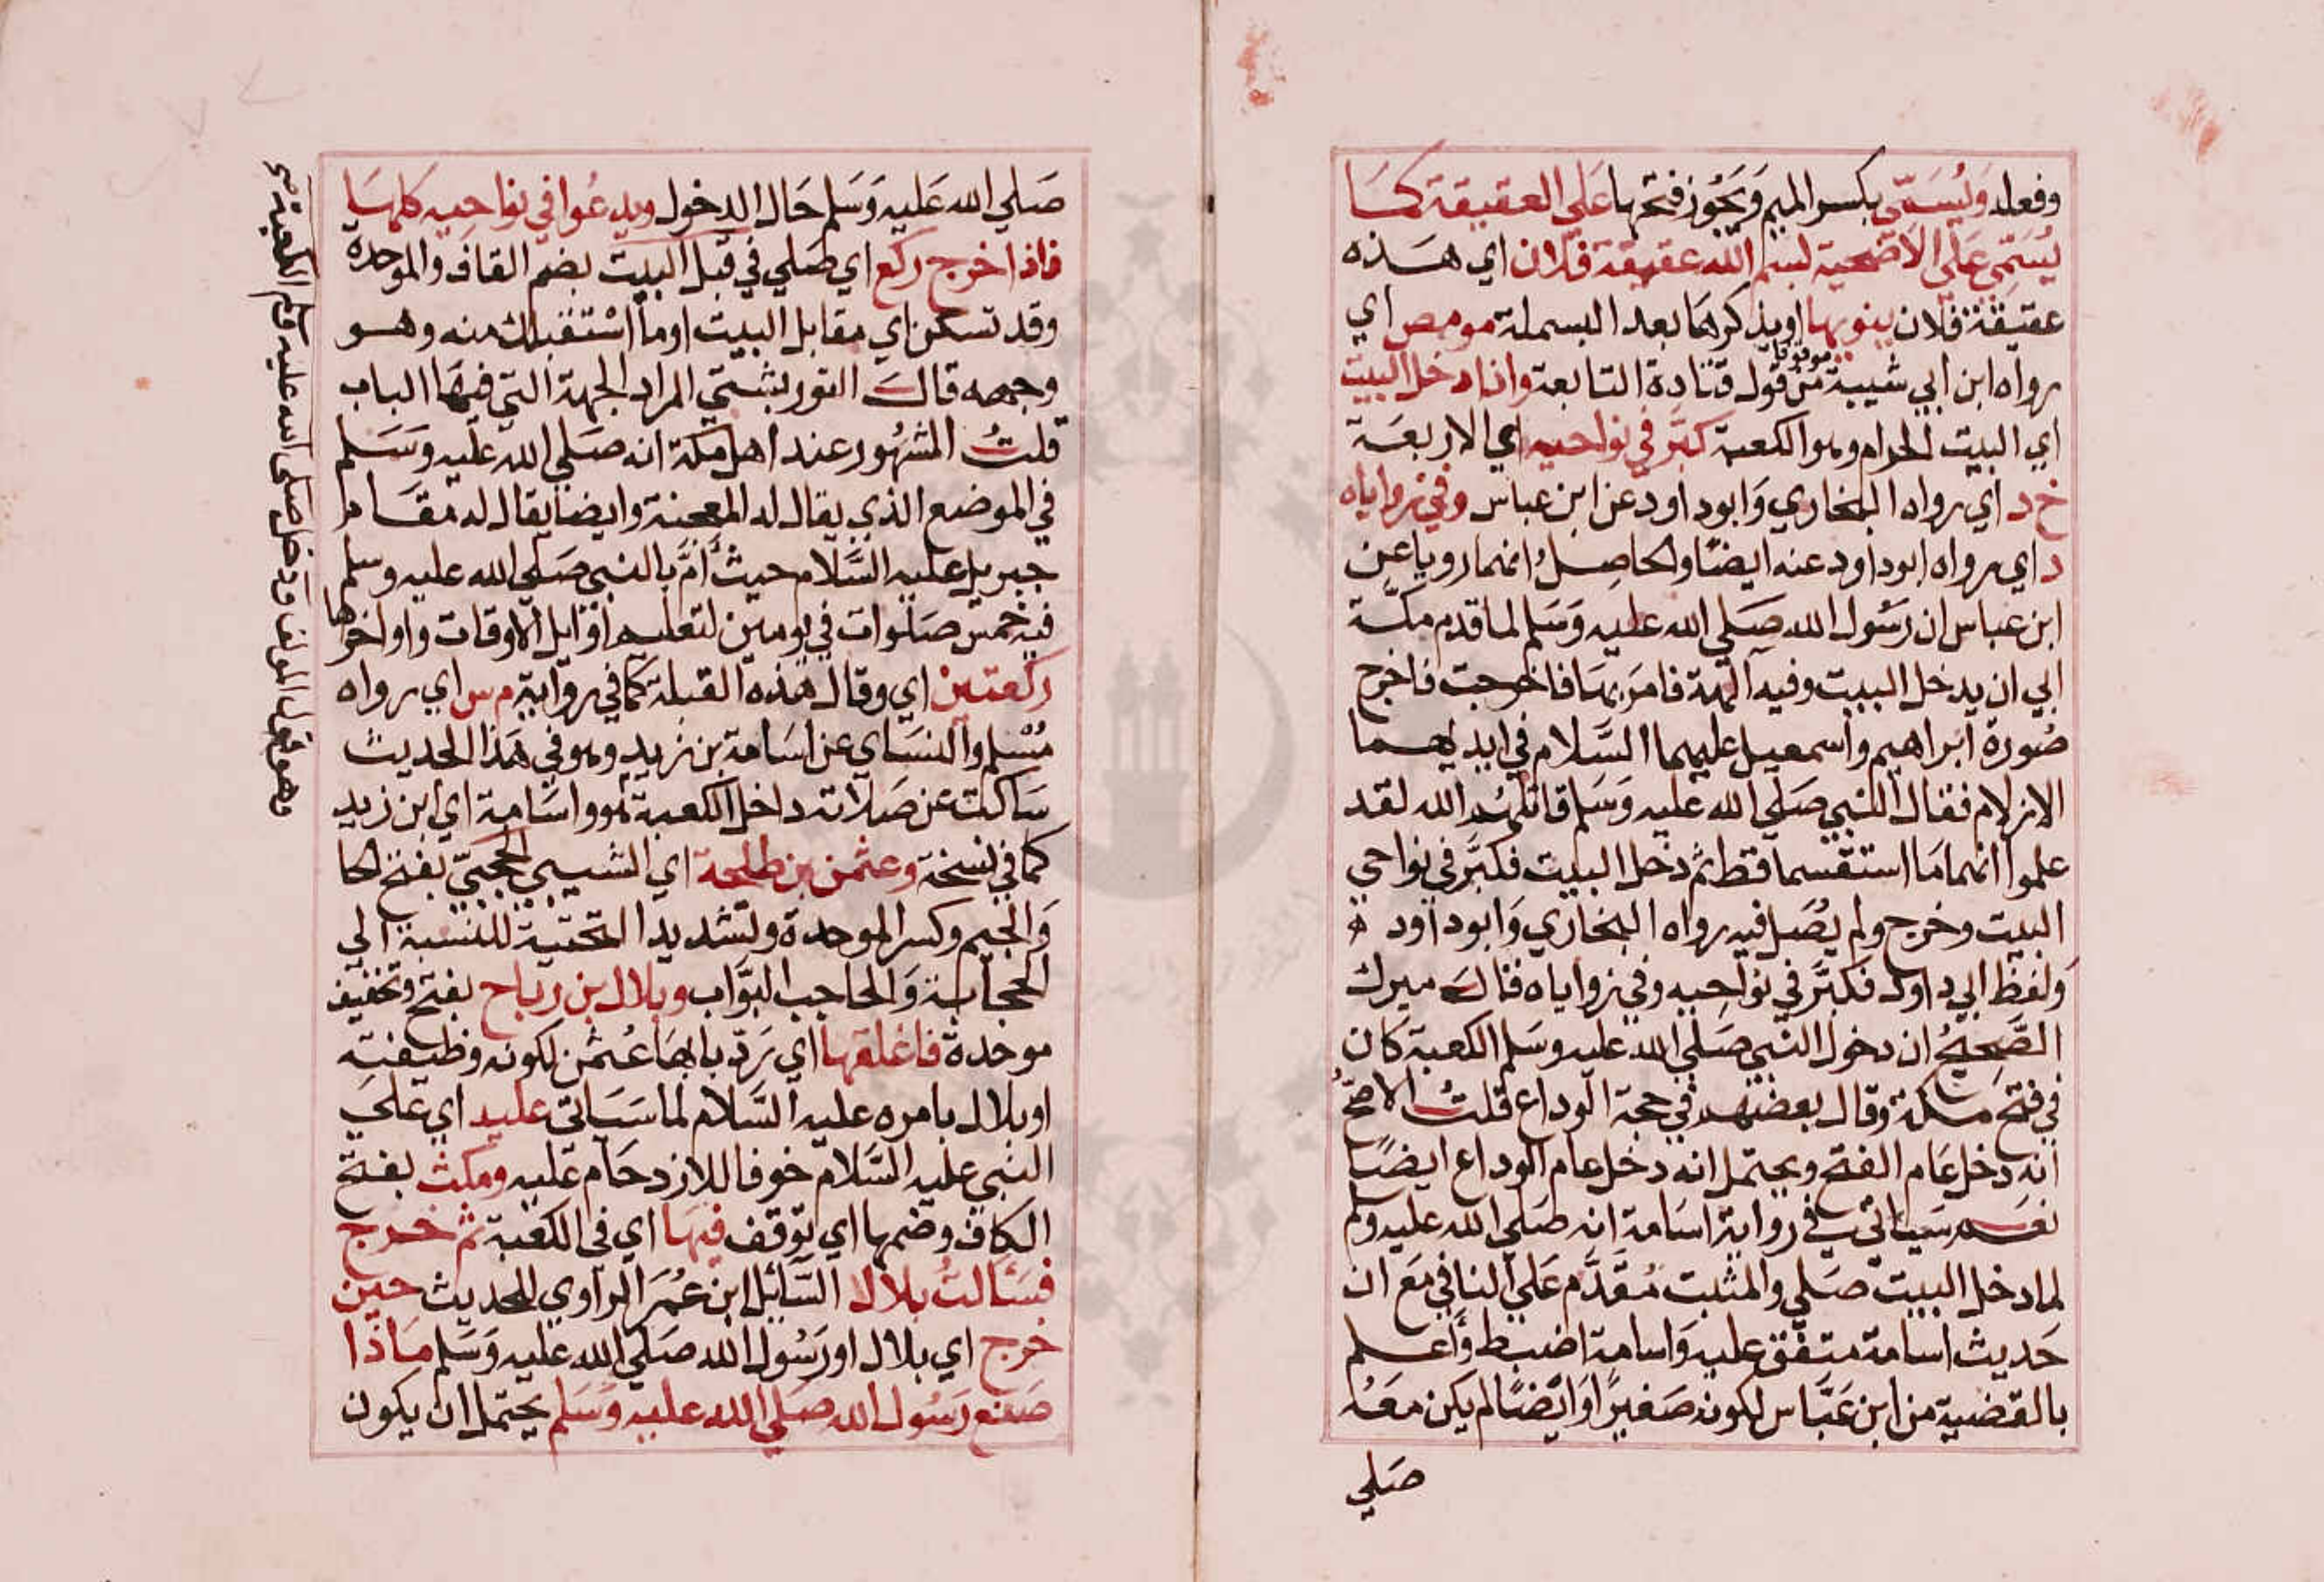 وفعله ويسمي بكسر الميم ويجوز فتحها علي العقيقة كما
يسمي علي الاضحية بسم الله عقيقة فلان اي هذه
عقيقة فلان ينويها او يذكرها بعد البسملة مومص اي
رواه ابن ابي شيبة من قول قتادة التابعة واذا دخل البيت
موقوفا
اي البيت الحرام وهو الكعبة كبر في نواحيه اي الاربعة
خ د اي رواه البخاري وابوداود عن ابن عباس وفي زواياه
د اي رواه ابوداود عنه ايضا والحاصل انهما رويا عن
ابن عباس ان رسول الله صلي الله عليه وسلم لما قدم مكة
ابي ان يدخل البيت وفيه آلهة فامر بها فاخرجت فاخرج
صورة ابراهيم واسمعيل عليهما السلام في ايديهما
الازلام فقال النبي صلي الله عليه وسلم قاتلهم الله لقد
علموا انهما ما استقسما قط ثم دخل البيت فكبر في نواحي
البيت وخرج ولم يصل فيه رواه البخاري وابوداود ه
ولفظ ابي داود فكبر في نواحيه وفي زواياه قال ميرك
الصحيح ان دخول النبي صلي الله عليه وسلم الكعبة كان
في فتح مكة وقال بعضهم في حجة الوداع قلت الاصح
انه دخل عام الفتح ويحتمل انه دخل عام الوداع ايضا
نعم سياتي في رواية اسامة انه صلي الله عليه وسلم
لما دخل البيت صلي والمثبت مقدم علي النافي مع ان
حديث اسامة متفق عليه واسامة اضبط واعلم
بالقضية من ابن عباس لكونه صغيرا وايضا لم يكن معه
صلي
صلي الله عليه وسلم حال الدخول ويدعوا في نواحيه كلها
فاذا خرج ركع اي صلي في قبل البيت بضم القاف والموحدة
وقد تسكن اي مقابل البيت او ما استقبلك منه وهو
وجهه قال التوربشتي المراد الجهة التي فيها الباب
قلت المشهور عند اهل مكة انه صلي الله عليه وسلم
في الموضع الذي يقال له المعجنة وايضا يقال له مقام
جبريل عليه السلام حيث أم بالنبي صلي الله عليه وسلم
فيه خمس صلوات في يومين لتعليم اوايل الاوقات واواخرها
ركعتين اي وقال هذه القبلة كما في رواية م س اي رواه
مسلم والنساي عن اسامة بن زيد وهو في هذا الحديث
ساكت عن صلاته داخل الكعبة هو واسامة اي ابن زيد
كما في نسخة وعثمن بن طلحة اي الشيبي الحجبي بفتح الحا
والجيم وكسر الموحدة وتشديد التحتية للنسبة الي
الحجابة والحاجب البواب وبلال بن رباح بفتح وتخفيف
موحدة فاغلقها اي رد بابها عثمن لكونه وظيفته
او بلال بامره عليه السلام لما سياتي عليه اي علي
النبي عليه السلام خوفا للازدحام عليه ومكث بفتح
الكاف وضمها اي توقف فيها اي في الكعبة ثم خرج
فسالت بلالا السائل ابن عمر الراوي للحديث حين
خرج اي بلال او رسول الله صلي الله عليه وسلم ماذا
صنع رسول الله صلي الله عليه وسلم يحتمل ان يكون
وهو قول المولف ودخل صلى الله عليه وسلم الكعبة